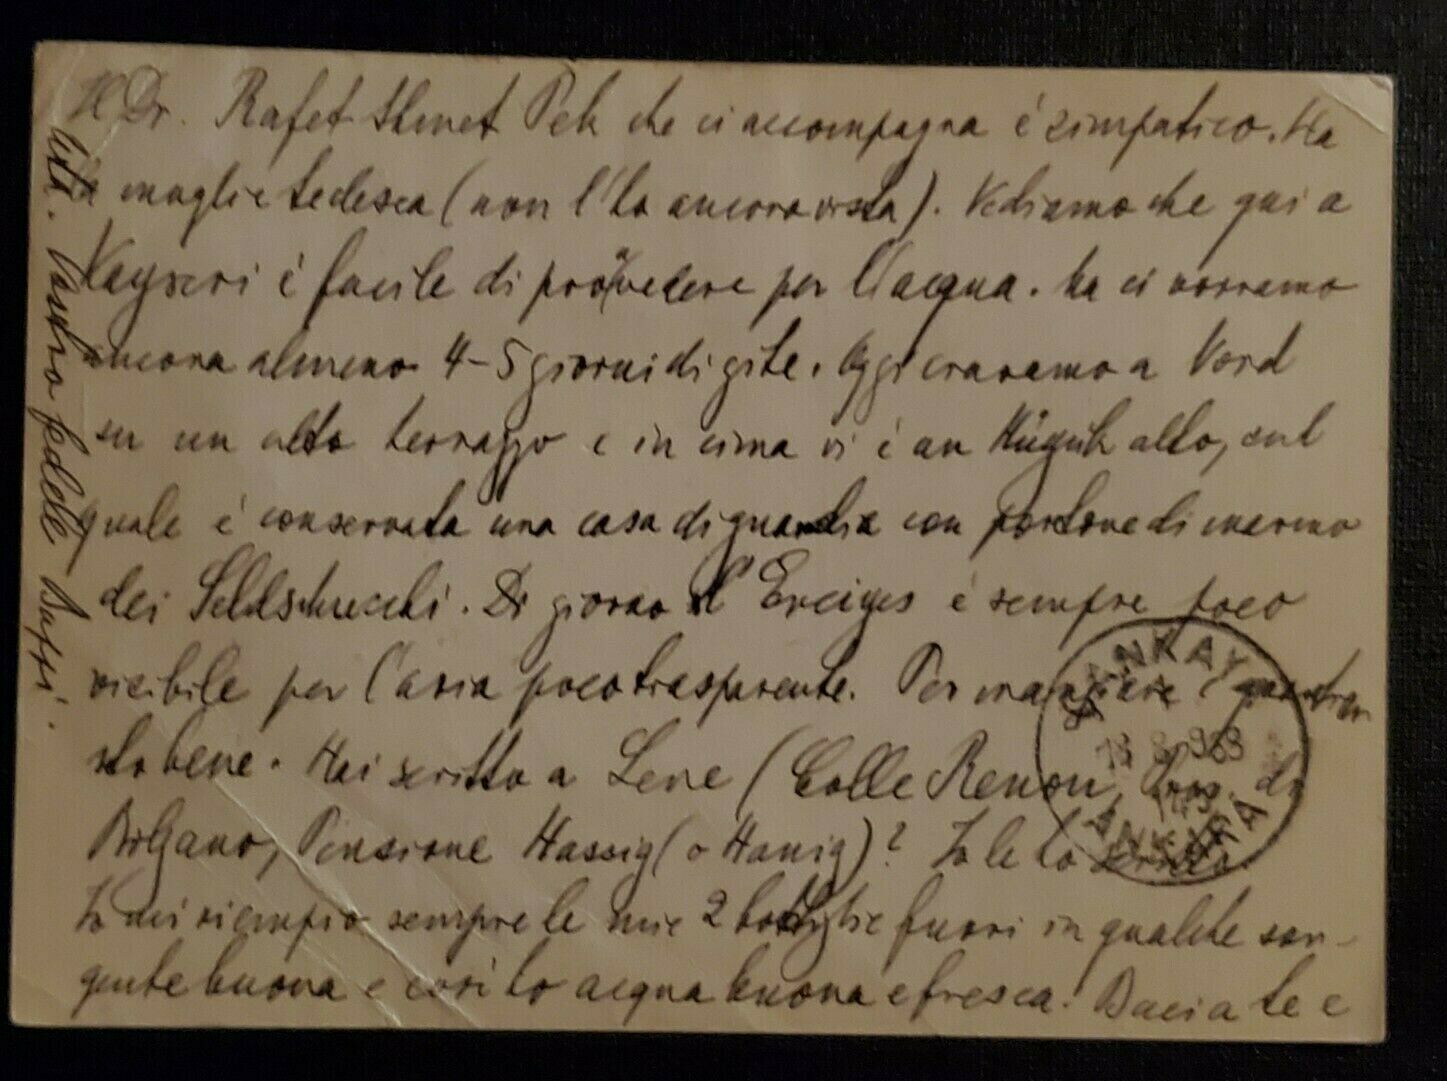 Il Dr. Rafet Ahmet Pek che ci accompagna è simpatico. Ha
la moglie tedesca (non l'ho ancora vista). Vediamo che qui a
Kayseri è facile di provvedere per l'acqua. Ma ci vorranno
ancora almeno 4-5 giorni di gite. Oggi eravamo a Nord
su un alto terrazzo e in cima vi è un Hüyük alto, sul
quale è conservata una casa di guardia con portone di marmo
dei Seldschucchi. Di giorno l'Erciyes è sempre poco
visibile per l'aria poco trasparente. Per mangiare è
sto bene. Hai scritto a Lene (Colle Renon, Prov. di
Bolzano, Pensione Hassig (o Hanig)? Io le ho scritto.
Io mi riempio sempre le mie 2 bottiglie fuori in qualche sor-
gente buona e così ho acqua buona e fresca. Bacia te e
Vostro fedele
ÇANKAYA
18 8 1953
ANKARA